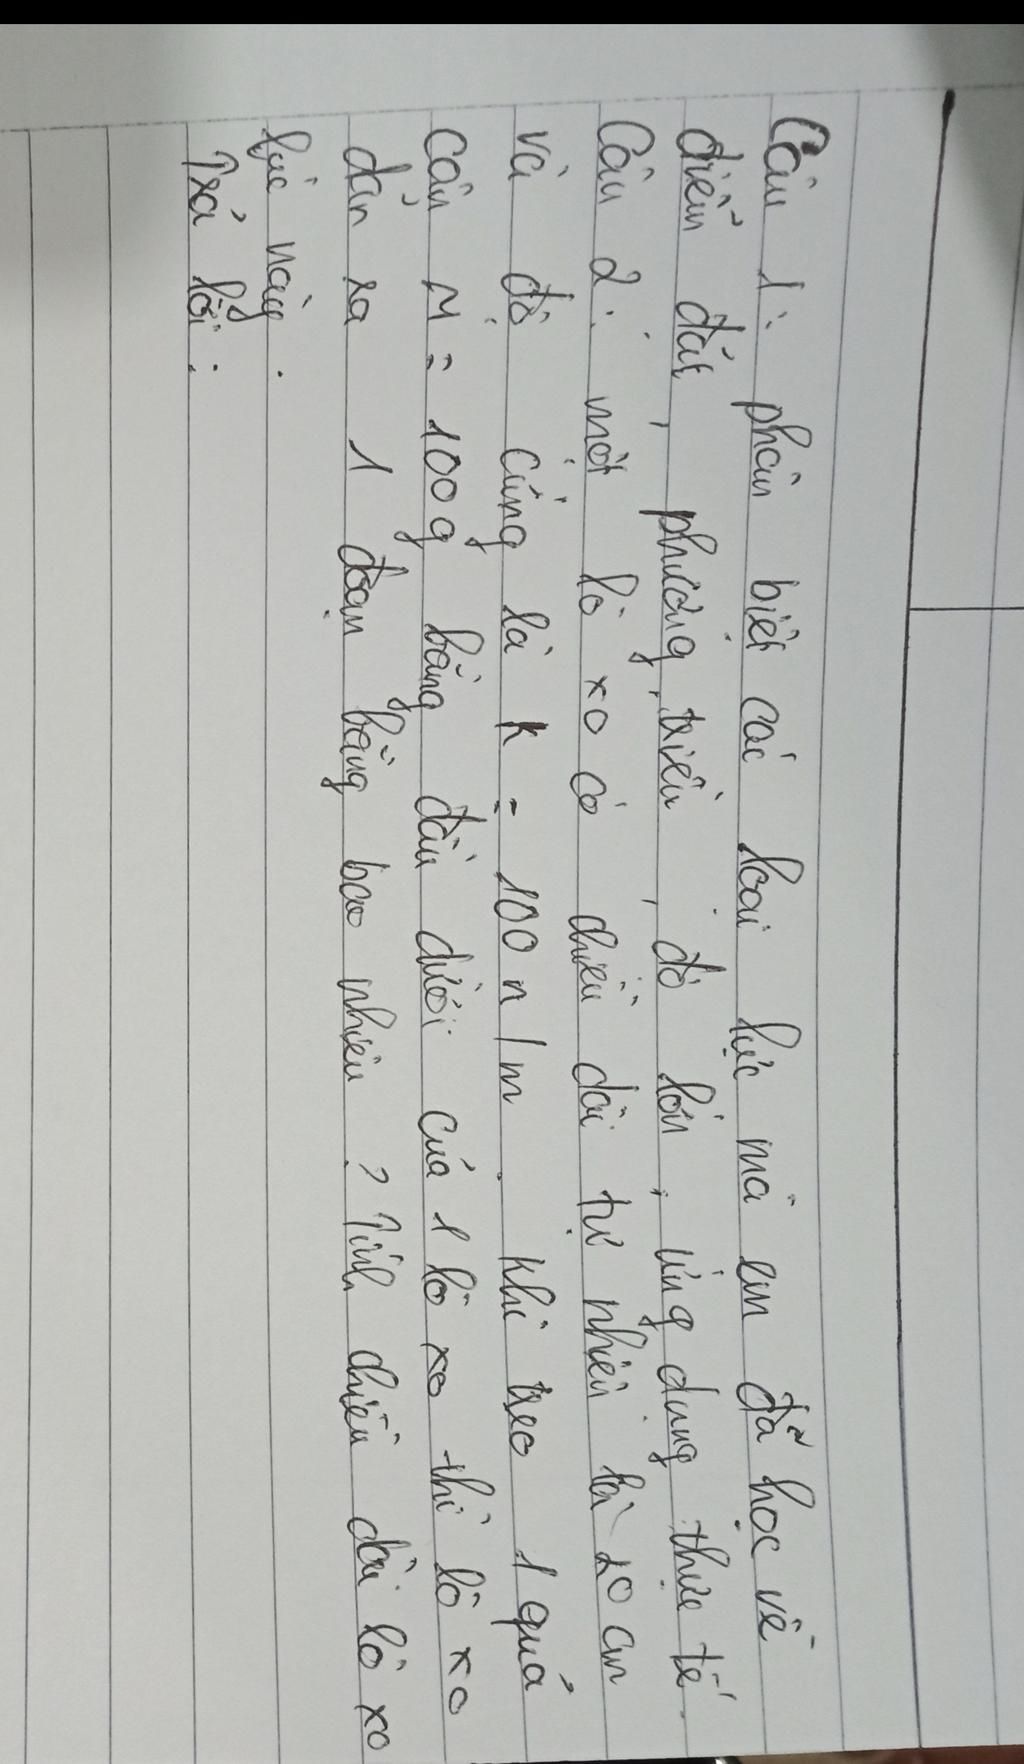 Câu 1: phân biệt các loại lực mà em đã học về
điểm đặt, phương, chiều, độ lớn, ứng dụng thực tế.
Câu 2: một lò xo có chiều dài tự nhiên là 20 cm
và độ cứng là K = 100 n/m. Khi treo 1 quả
cân M = 100g bằng đầu dưới của 1 lò xo thì lò xo
dản ra 1 đoạn bằng bao nhiêu? Tính chiều dài lò xo
lúc này.
Trả lời: